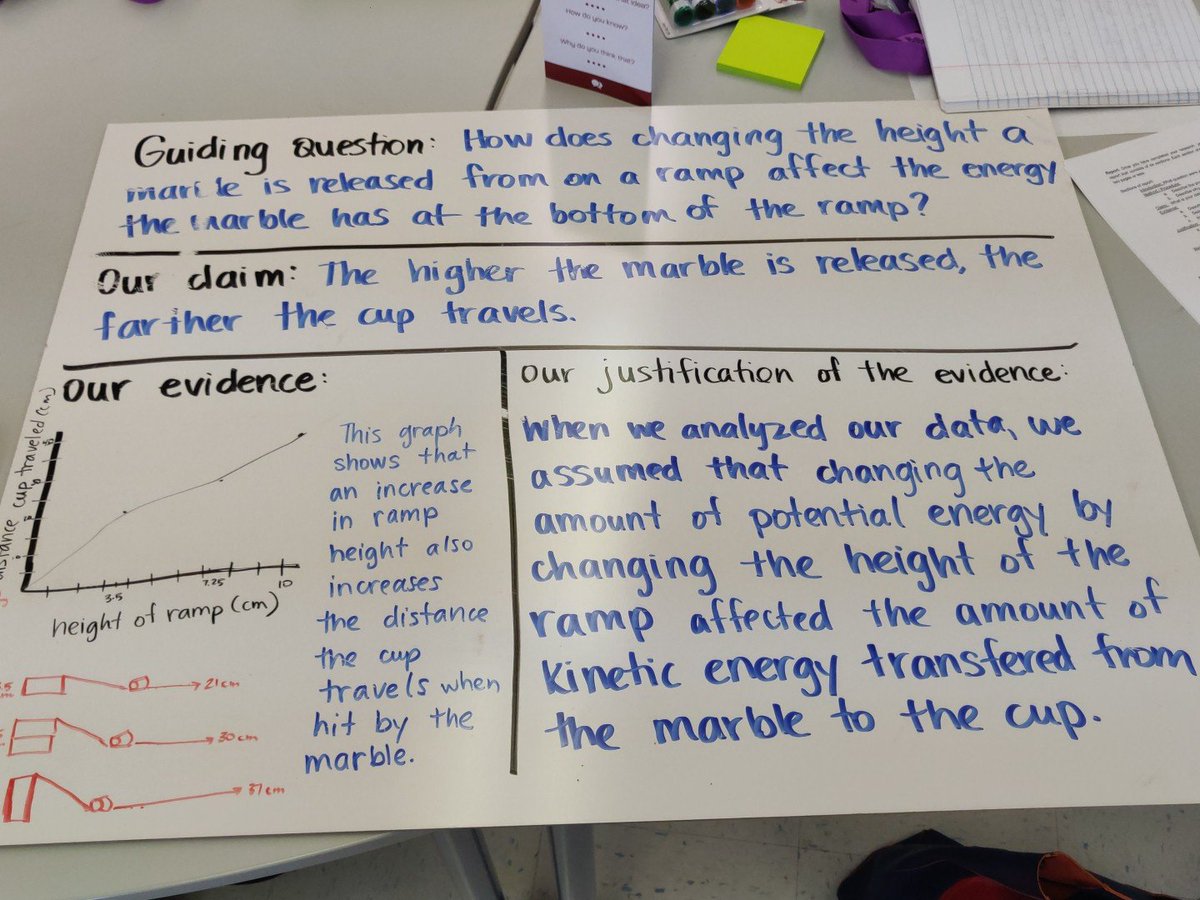 that idea?
How do you know?
Why do you think that?
Guiding Question: How does changing the height a
marble is released from on a ramp affect the energy
the marble has at the bottom of the ramp?
Our claim: The higher the marble is released, the
farther the cup travels.
Our evidence:
distance cup traveled (cm)
3.5
7.25
10
height of ramp (cm)
This graph
shows that
an increase
in ramp
height also
increases
the distance
the cup
travels when
hit by the
marble.
21cm
30 cm
37cm
Our justification of the evidence:
When we analyzed our data, we
assumed that changing the
amount of potential energy by
changing the height of the
ramp affected the amount of
Kinetic energy transfered from
the marble to the cup.